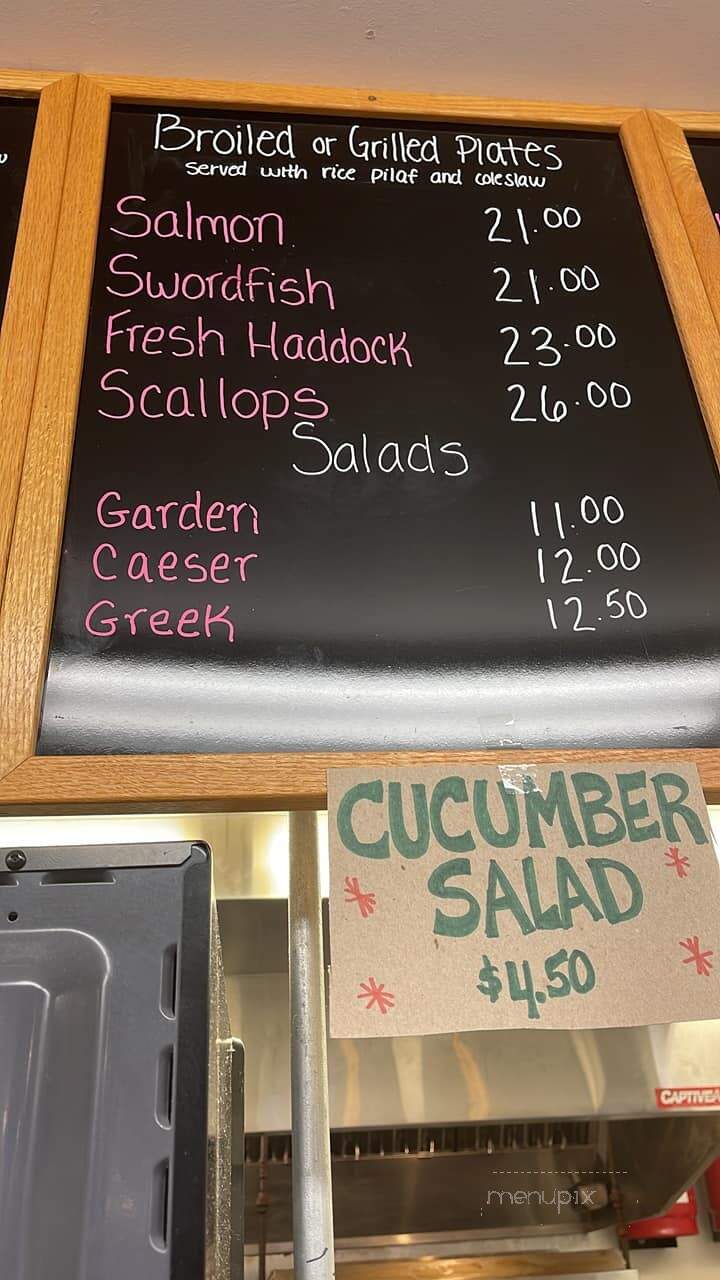 Broiled or Grilled Plates
Served with rice pilaf and coleslaw
Salmon 21.00
Swordfish 21.00
Fresh Haddock 23.00
Scallops 26.00
Salads
Garden 11.00
Caeser 12.00
Greek 12.50
CUCUMBER
SALAD
$4.50
menupix